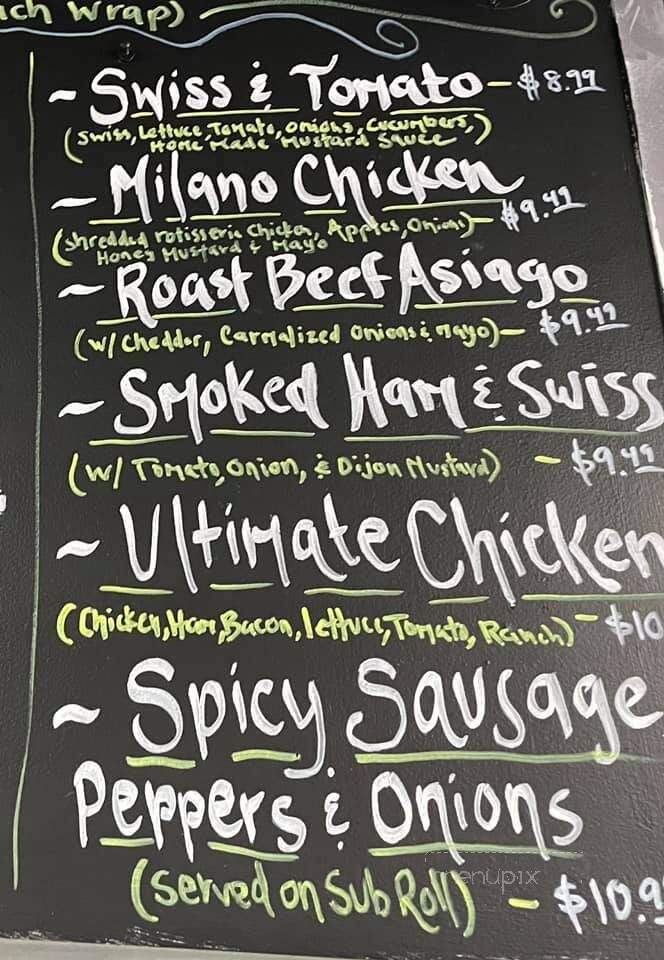 ch Wrap)
~ Swiss & Tomato - $8.99
(Swiss, Lettuce, Tomato, Onions, Cucumbers,
Home Made Mustard Sauce)
~ Milano Chicken
(shredded rotisserie Chicken, Apples, Onions) - $9.49
Honey Mustard & Mayo
~ Roast Beef Asiago
(w/ Cheddar, Carmalized Onions & Mayo) - $9.49
~ Smoked Ham & Swiss
(w/ Tomato, Onion, & Dijon Mustard) - $9.49
~ Ultimate Chicken
(Chicken, Ham, Bacon, lettuce, Tomato, Ranch) - $10
~ Spicy Sausage
Peppers & Onions
(Served on Sub Roll) - $10.9
menupix